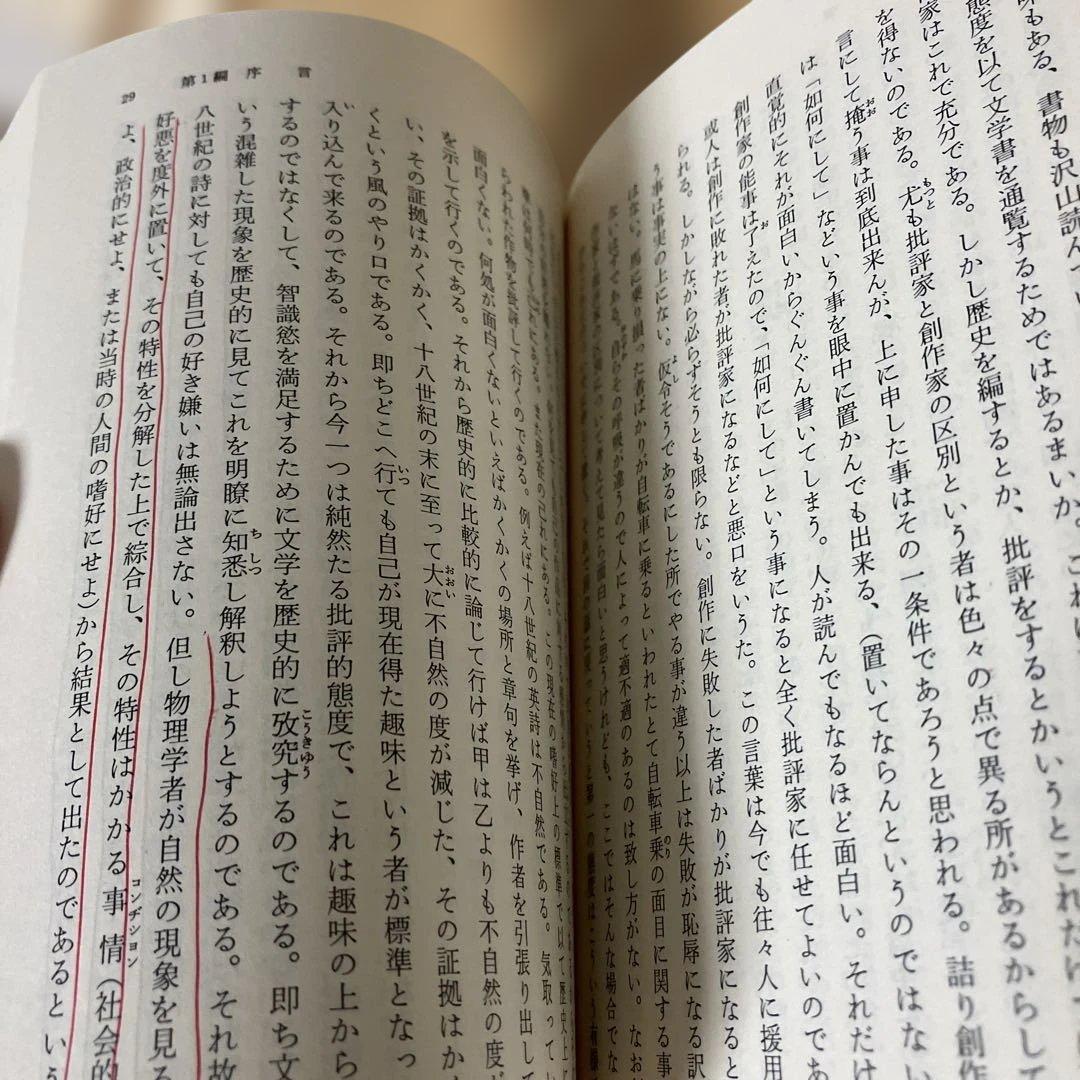 味もある、書物も沢山読んでい
態度を以て文学書を通覧するためではあるまいか。これは
家はこれで充分である。しかし歴史を編するとか、批評をするとかいうとこれだけ
を得ないのである。尤も批評家と創作家の区別という者は色々の点で異る所があるからして
言にして掩う事は到底出来んが、上に申した事はその一条件であろうと思われる。詰り創作
は「如何にして」などという事を眼中に置かんでも出来る、(置いてならんというのではない
直覚的にそれが面白いからぐんぐん書いてしまう。人が読んでもなるほど面白い。それだけ
創作家の能事は了えたので、「如何にして」という事になると全く批評家に任せてよいのであ
或人は創作に敗れた者が批評家になるなどと悪口をいうた。この言葉は今でも往々人に援用
られる。しかしながら必らずそうとも限らない。創作に失敗した者ばかりが批評家になると
う事は事実の上にない。仮令そうであるにした所でやる事が違う以上は失敗が恥辱になる訳
はない。馬に乗り損った者ばかりが自転車に乗るといわれたとて自転車乗の面目に関する事
ない はずである。自らその呼吸が違うので人によって適不適のあるのは致し方がない。なお
第1編 序 言
29
られた作物を批評して行くのである。例えば十八世紀の英詩は不自然である。気取ってい
面白くない。何処が面白くないといえばかくかくの場所と章句を挙げ、作者を引張り出して
を示して行くのである。それから歴史的に比較的に論じて行けば甲は乙よりも不自然の度が
い、その証拠はかくかく、十八世紀の末に至って大に不自然の度が減じた、その証拠はか
くという風のやり口である。即ちどこへ行ても自己が現在得た趣味という者が標準となっ
入り込んで来るのである。それから今一つは純然たる批評的態度で、これは趣味の上から
するのではなくして、智識慾を満足するために文学を歴史的に攷究するのである。即ち文
いう混雑した現象を歴史的に見てこれを明瞭に知悉し解釈しようとするのである。それ故
八世紀の詩に対しても自己の好き嫌いは無論出さない。但し物理学者が自然の現象を見る
好悪を度外に置いて、その特性を分解した上で綜合し、その特性はかかる事情(社会的
よ、政治的にせよ、または当時の人間の嗜好にせよ)から結果として出たのであるという